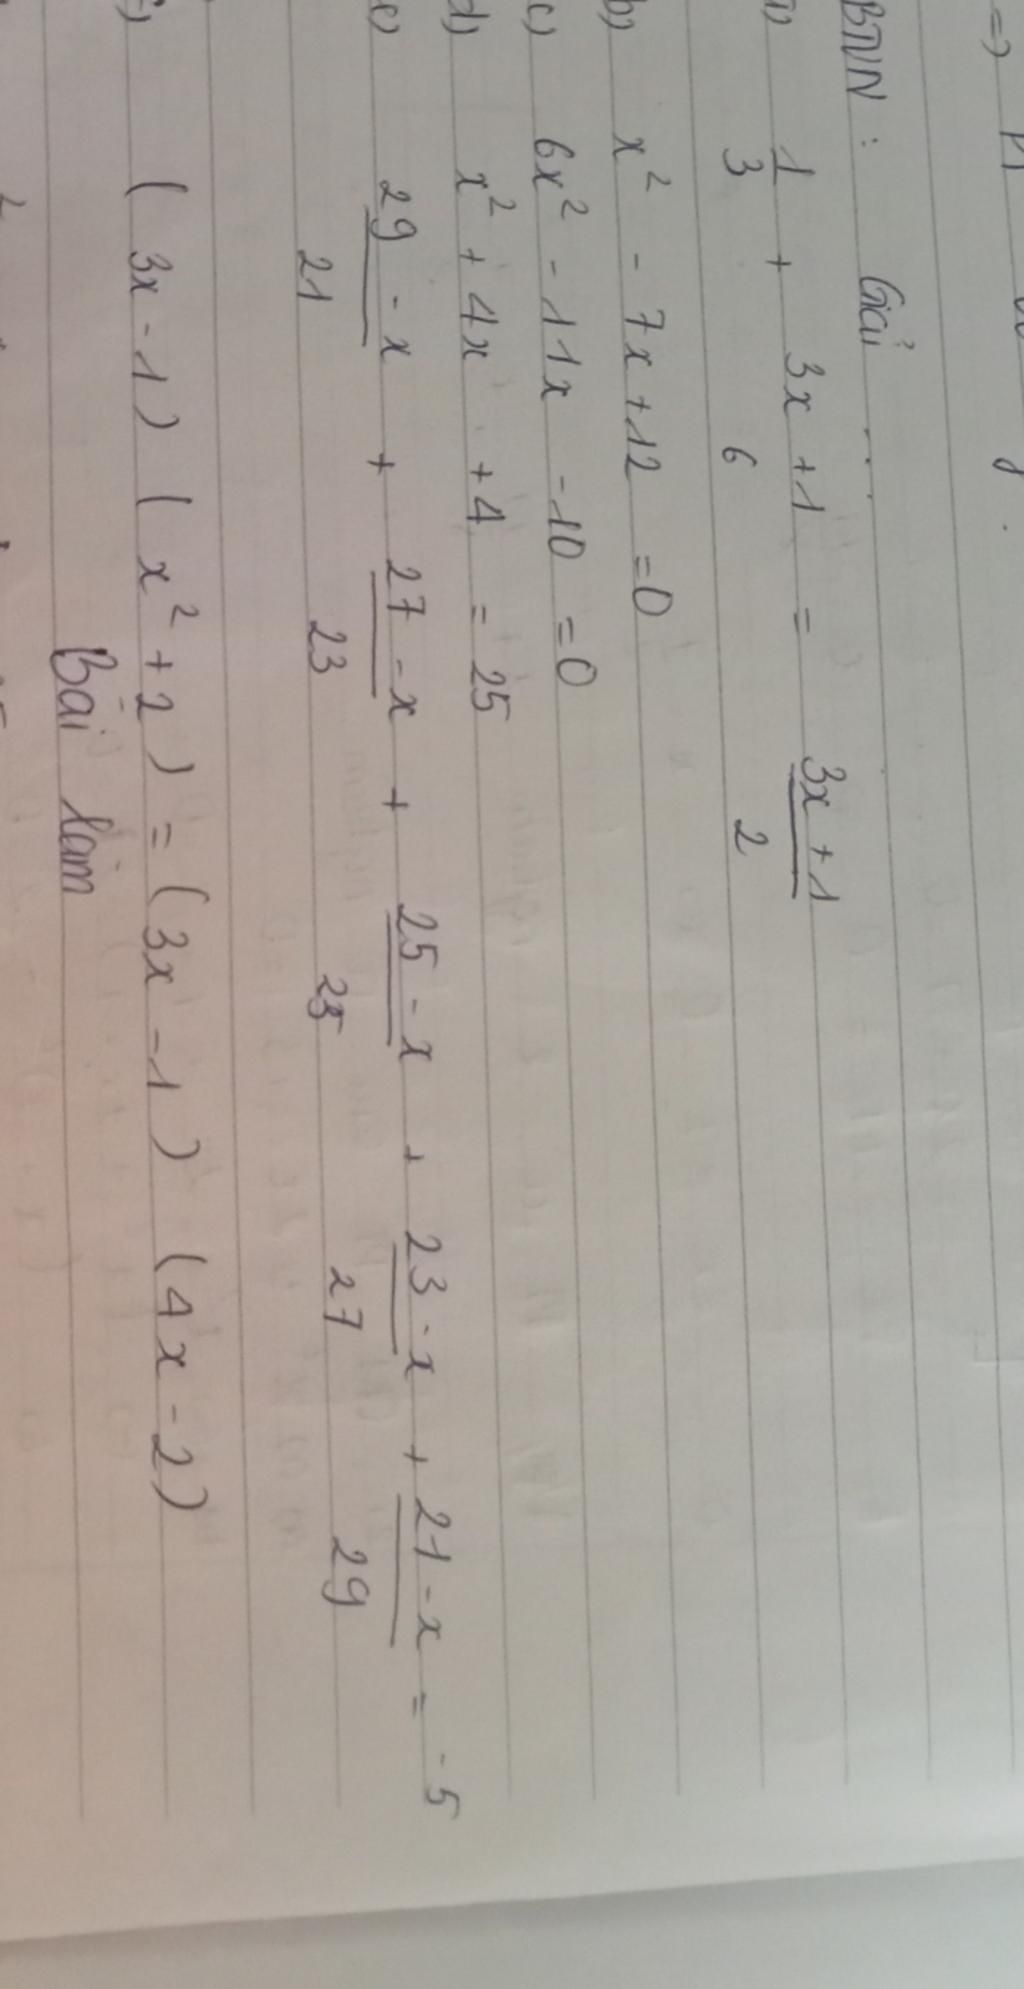 BTVN : Giải
a) 1/3 + 3x+1/6 = 3x+1/2
b) x² - 7x + 12 = 0
c) 6x² - 11x - 10 = 0
d) x² + 4x + 4 = 25
e) 29-x/21 + 27-x/23 + 25-x/25 + 23-x/27 + 21-x/29 = -5
(3x-1)(x²+2) = (3x-1)(4x-2)
Bài làm